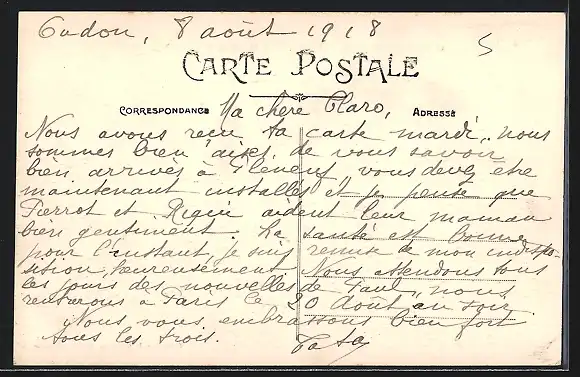 Oudon, 8 août 1918
5
CARTE POSTALE
CORRESPONDANCE Ma chère Claro, ADRESSE
Nous avons reçu ta carte mardi, nous
sommes bien aises de vous savoir
bien arrivés à vous devez être
maintenant installés et je pense que
Pierrot et aident leur maman
bien gentiment. La santé est bonne
pour l'instant, je suis remise de mon indispo-
sition, heureusement Nous attendons tous
les jours des nouvelles de Paul, nous
rentrerons à Paris le 20 Août au soir.
Nous vous embrassons bien fort
tous les trois. Tata